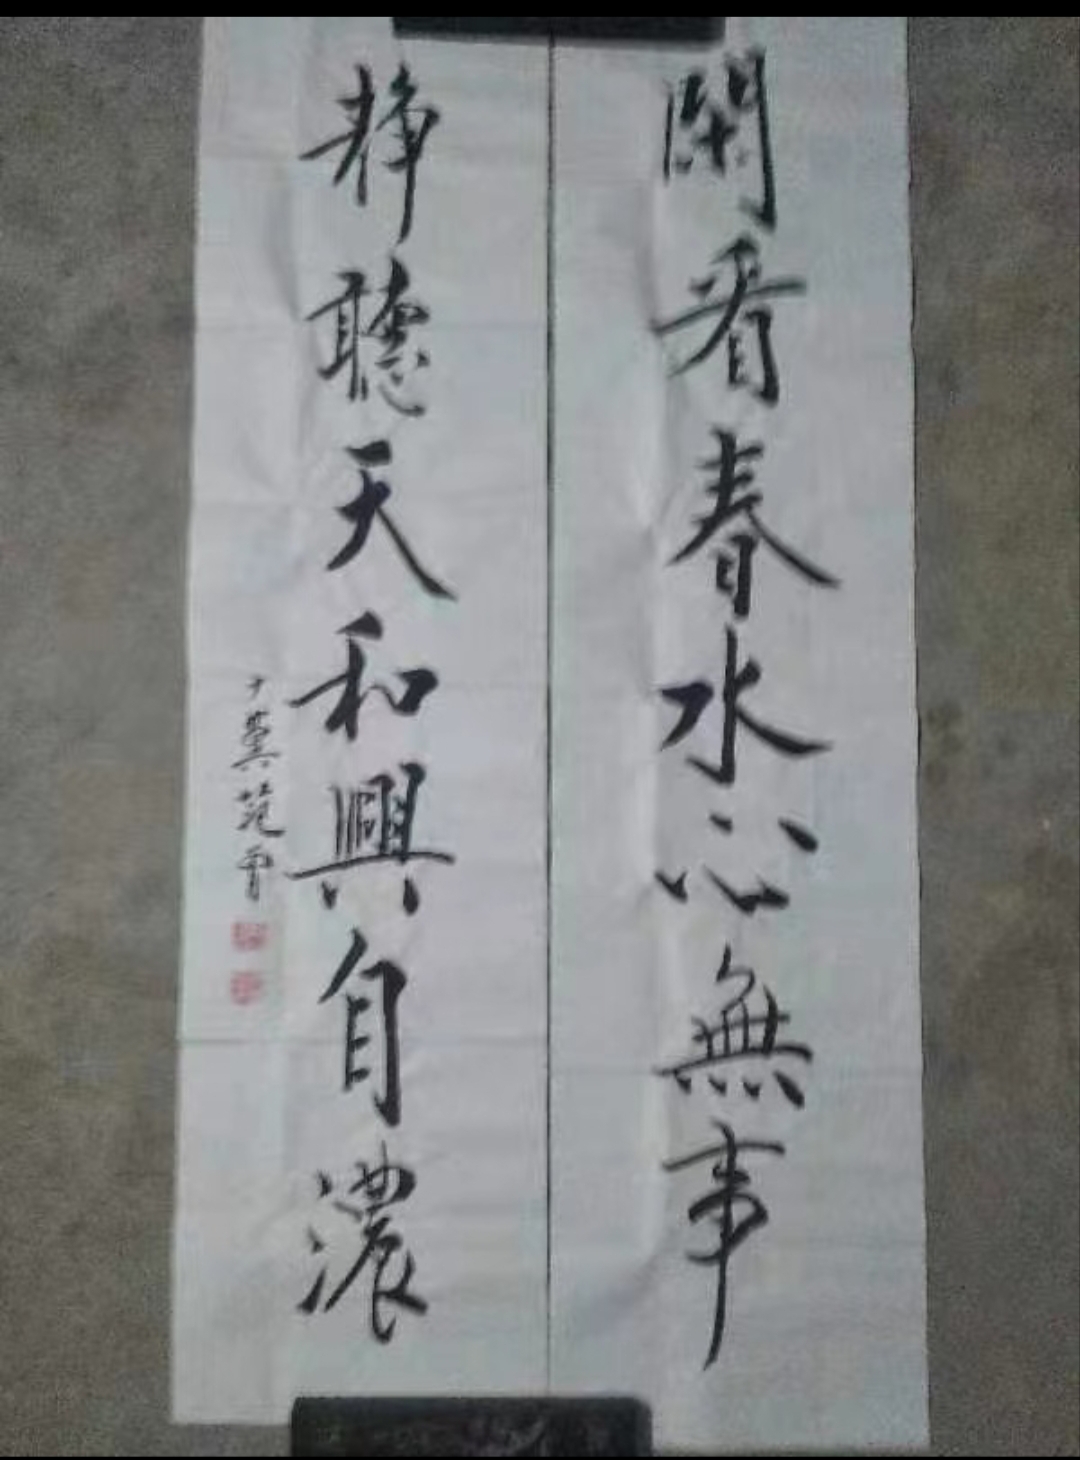 閑看春水心無事
静聽天和興自濃